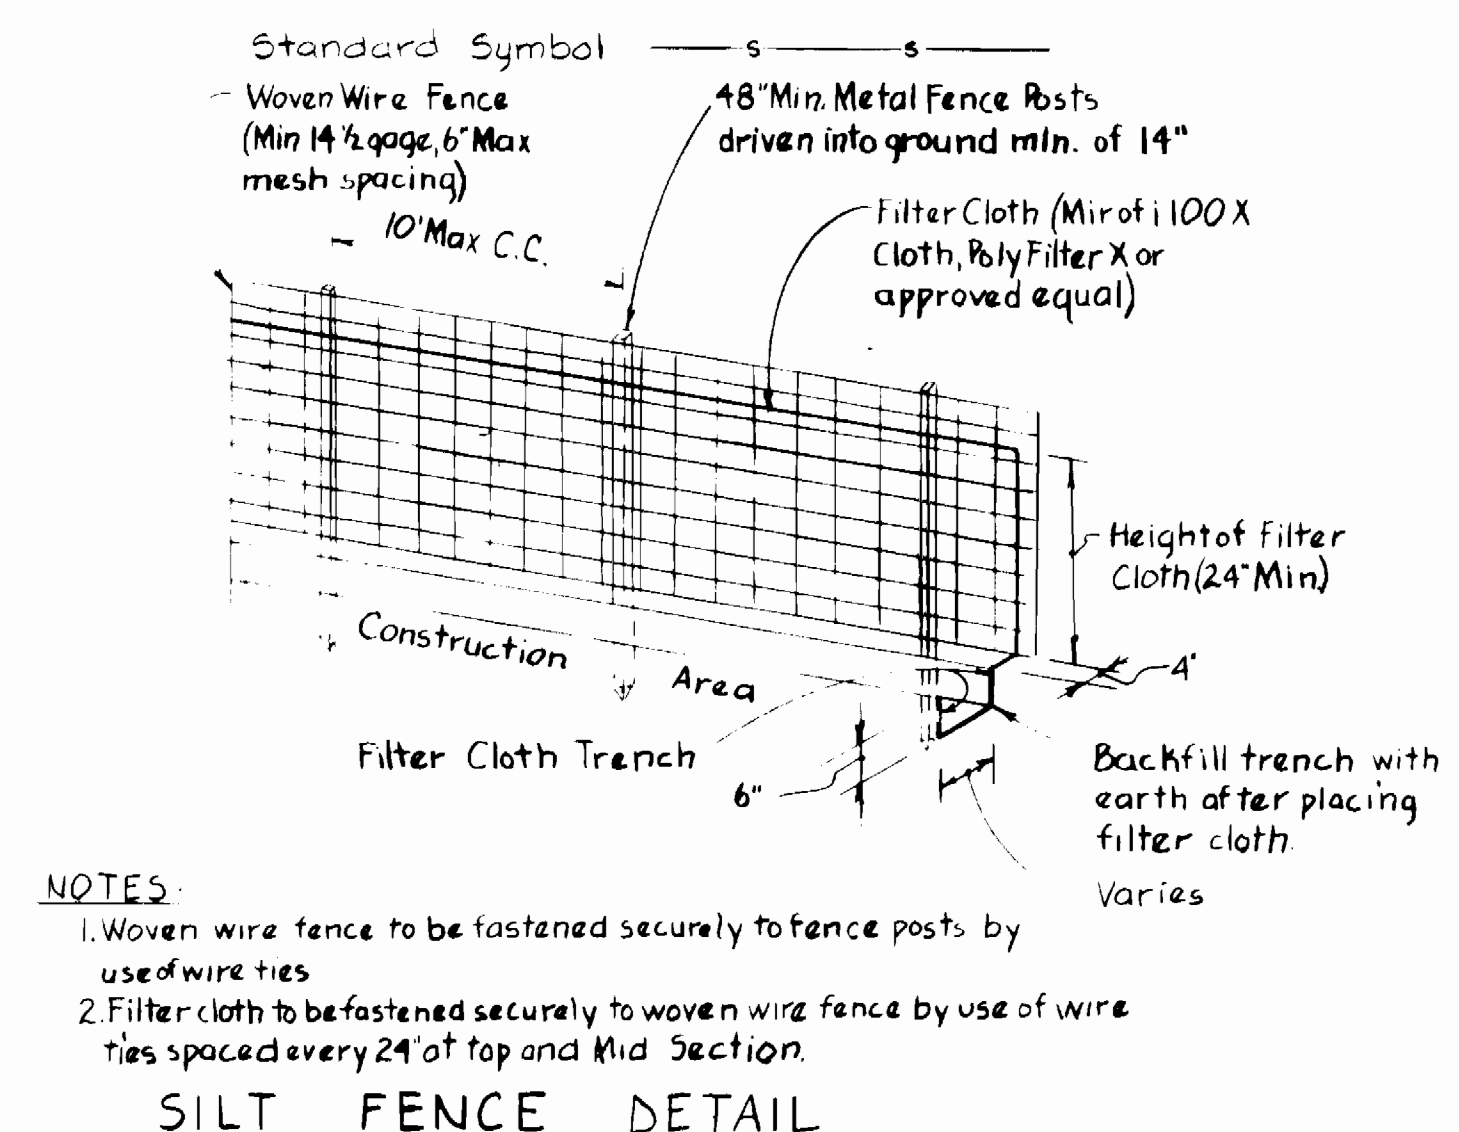 Standard Symbol S S
Woven Wire Fence
(Min 14 1/2 gage, 6" Max
mesh spacing)
10' Max C.C.
48" Min. Metal Fence Posts
driven into ground min. of 14"
Filter Cloth (Mirafi 100 X
Cloth, Poly Filter X or
approved equal)
Height of Filter
Cloth (24" Min.)
4"
Construction Area
Filter Cloth Trench
6"
Backfill trench with
earth after placing
filter cloth.
Varies
NOTES:
1. Woven wire fence to be fastened securely to fence posts by
use of wire ties
2. Filter cloth to be fastened securely to woven wire fence by use of wire
ties spaced every 24" at top and Mid Section.
SILT FENCE DETAIL